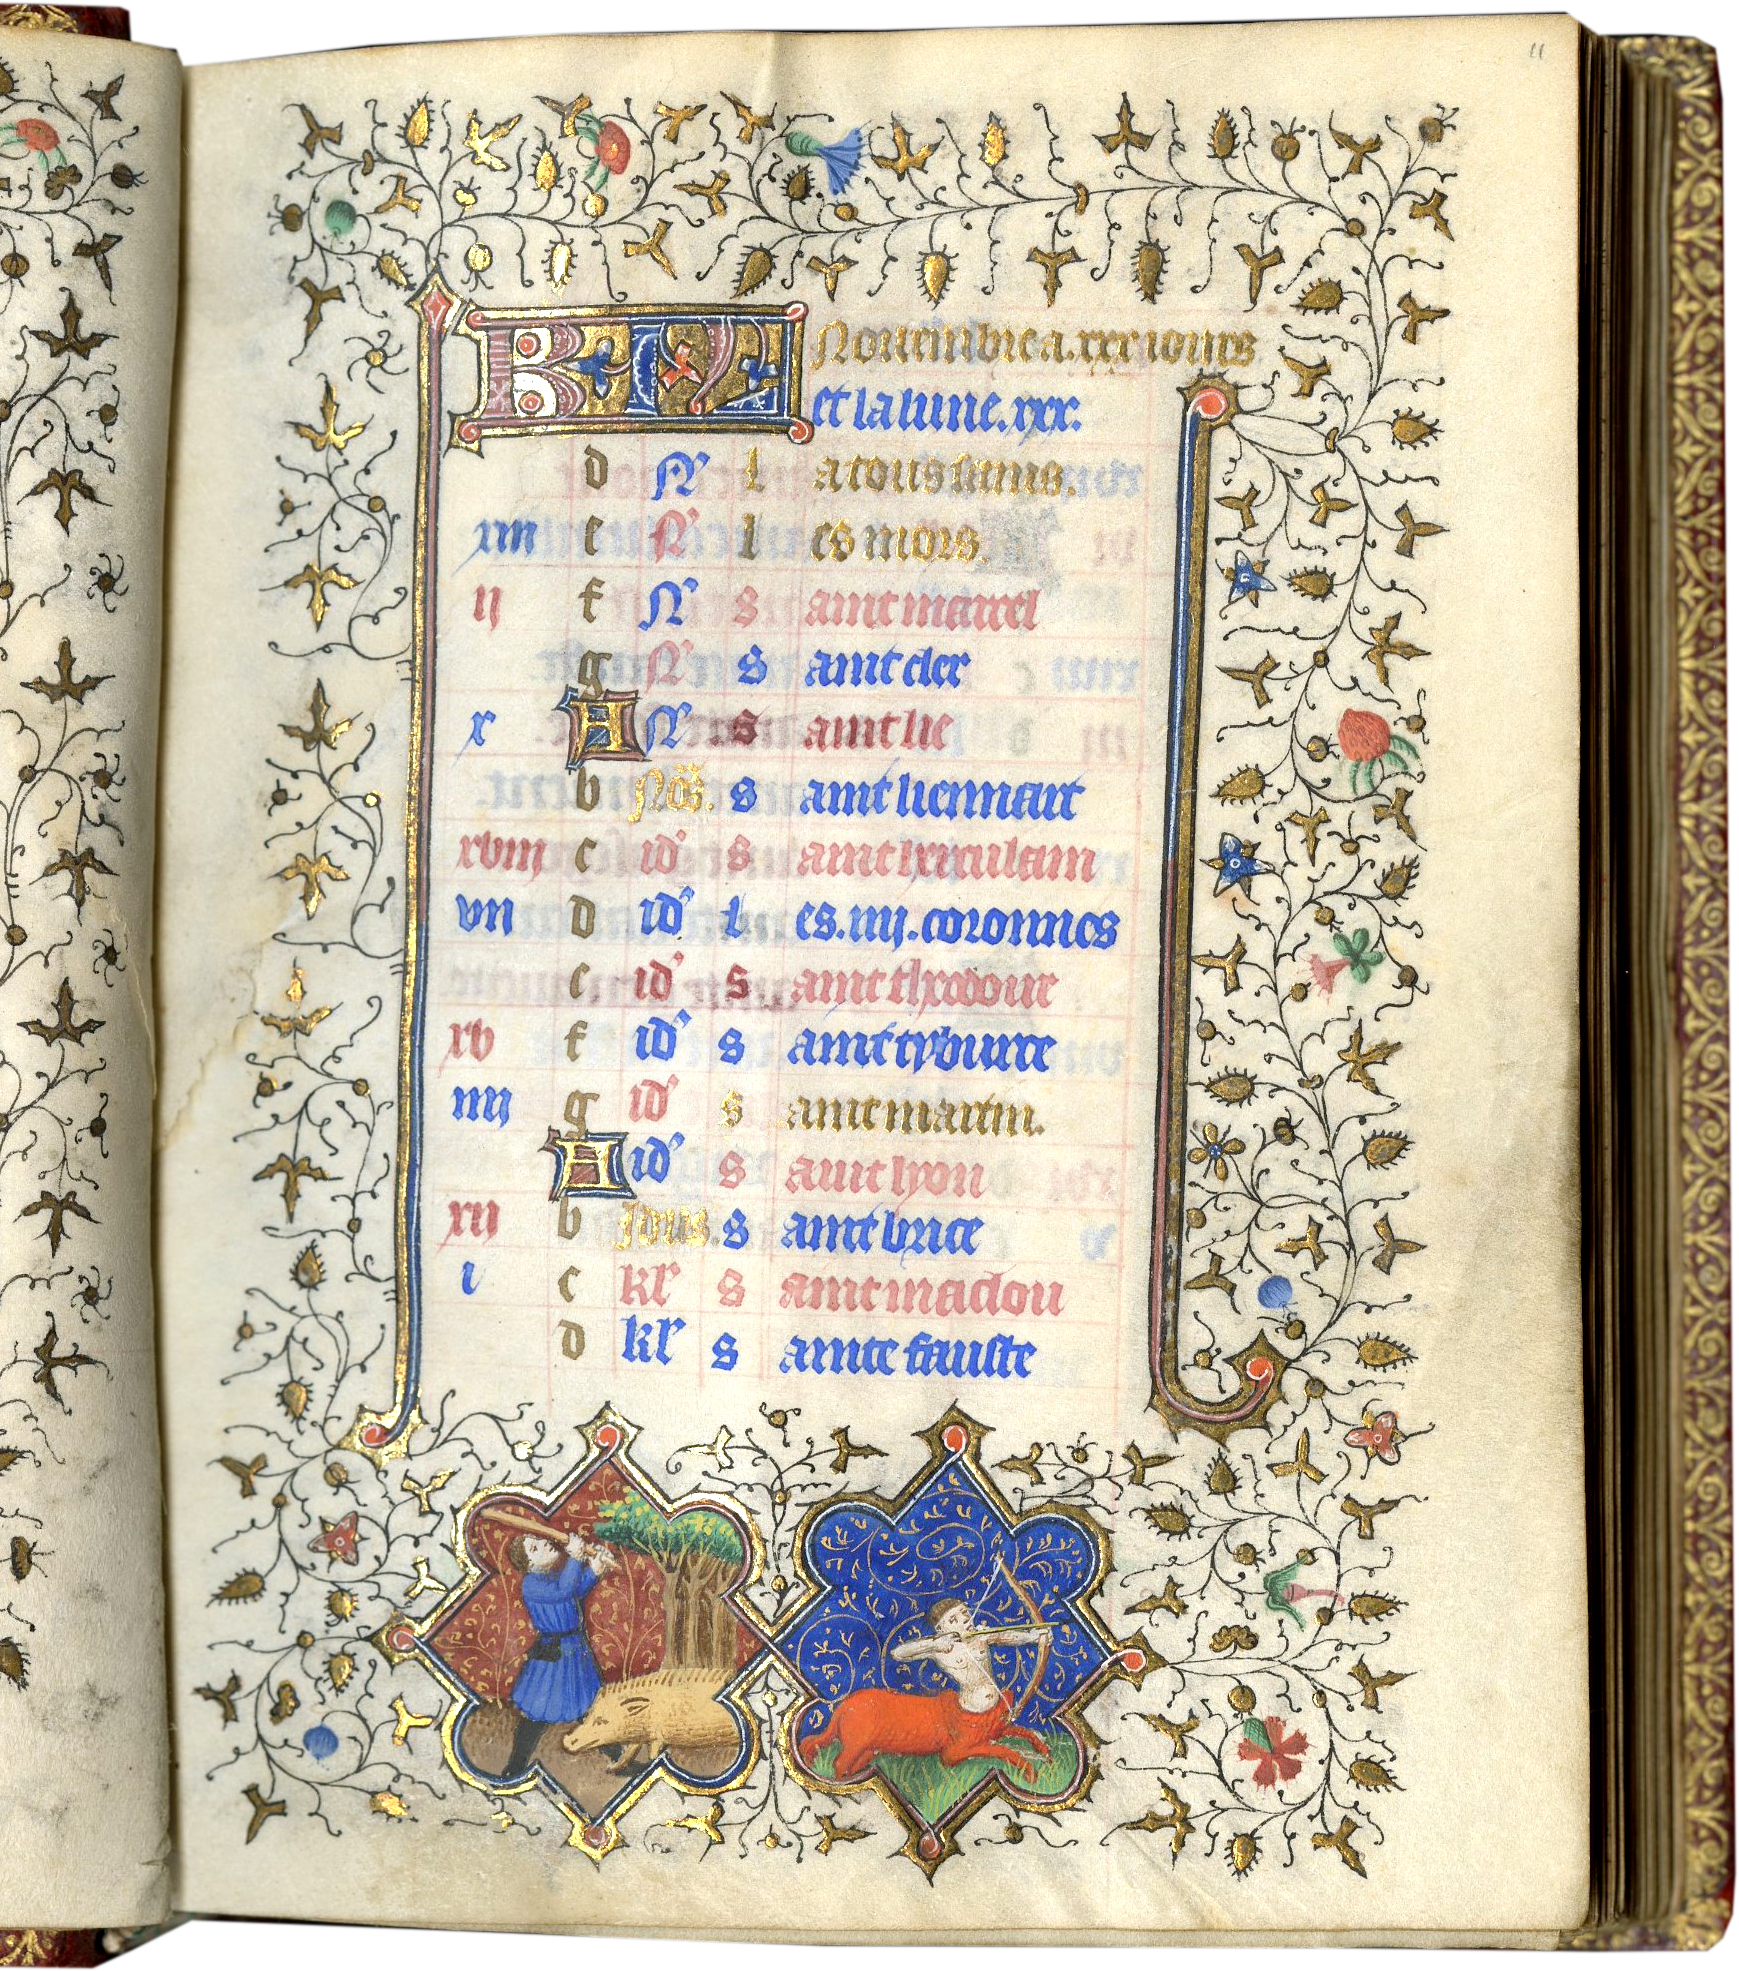 11
KL Nouembre a. xxx iours
et la lune. xxx.
d N L a tous sains.
xiiii e N L es mors.
ii f N S aint marcel
g N S aint cler
x A N S aint lie
b Nōs. S aint liennart
xviii c id' S aint
vii d id' L es. iiii. coronnes
e id' S aint
xv f id' S aint tyburce
iiii g id' S aint martin.
A id' S aint lyon
xii b Idus. S aint brice
i c kl' S aint maclou
d kl' S ainte fauste